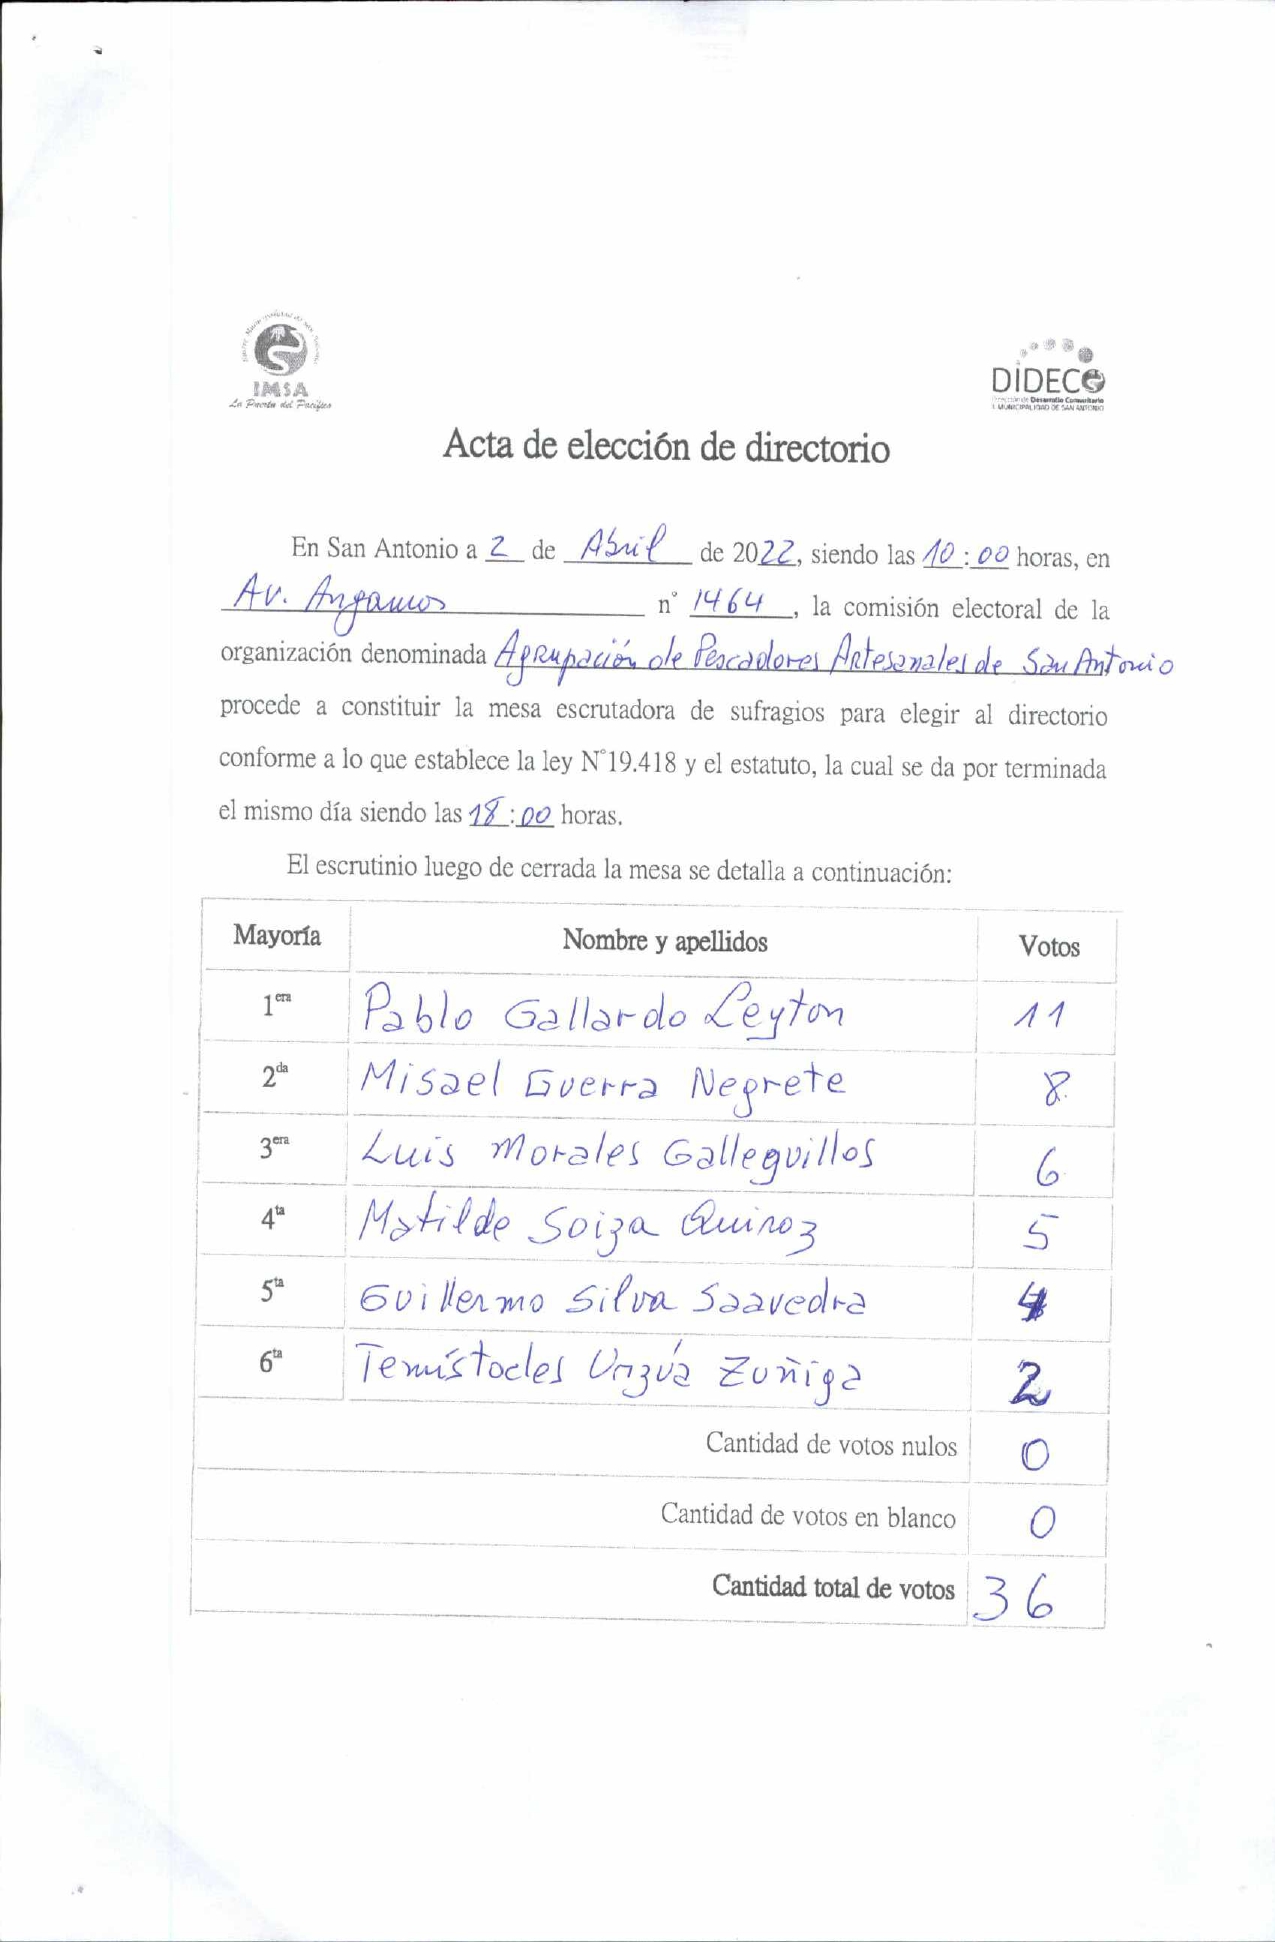 IMSA
La Puerta del Pacífico
DIDECO
Dirección de Desarrollo Comunitario
I. MUNICIPALIDAD DE SAN ANTONIO
Acta de elección de directorio
En San Antonio a 2 de Abril de 2022, siendo las 10:00 horas, en
Av. Angamos n° 1464, la comisión electoral de la
organización denominada Agrupación de Pescadores Artesanales de San Antonio
procede a constituir la mesa escrutadora de sufragios para elegir al directorio
conforme a lo que establece la ley N°19.418 y el estatuto, la cual se da por terminada
el mismo día siendo las 18:00 horas.
El escrutinio luego de cerrada la mesa se detalla a continuación:
Mayoría Nombre y apellidos Votos
1era Pablo Gallardo Leyton 11
2da Misael Guerra Negrete 8
3era Luis Morales Galleguillos 6
4ta Matilde Soiza Quiroz 5
5ta Guillermo Silva Saavedra 4
6ta Temístocles Urzúa Zuñiga 2
Cantidad de votos nulos 0
Cantidad de votos en blanco 0
Cantidad total de votos 36